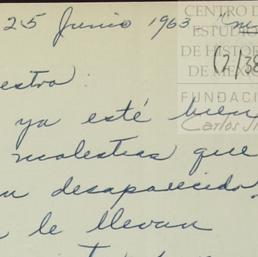 25 Junio 1963.
CENTRO D
ESTUDIO
DE HISTOR
DE ME
(2/38
FUNDACI
Carlos Sl
estra:
ya esté bien
molestias que
n desaparecido.
le llevan